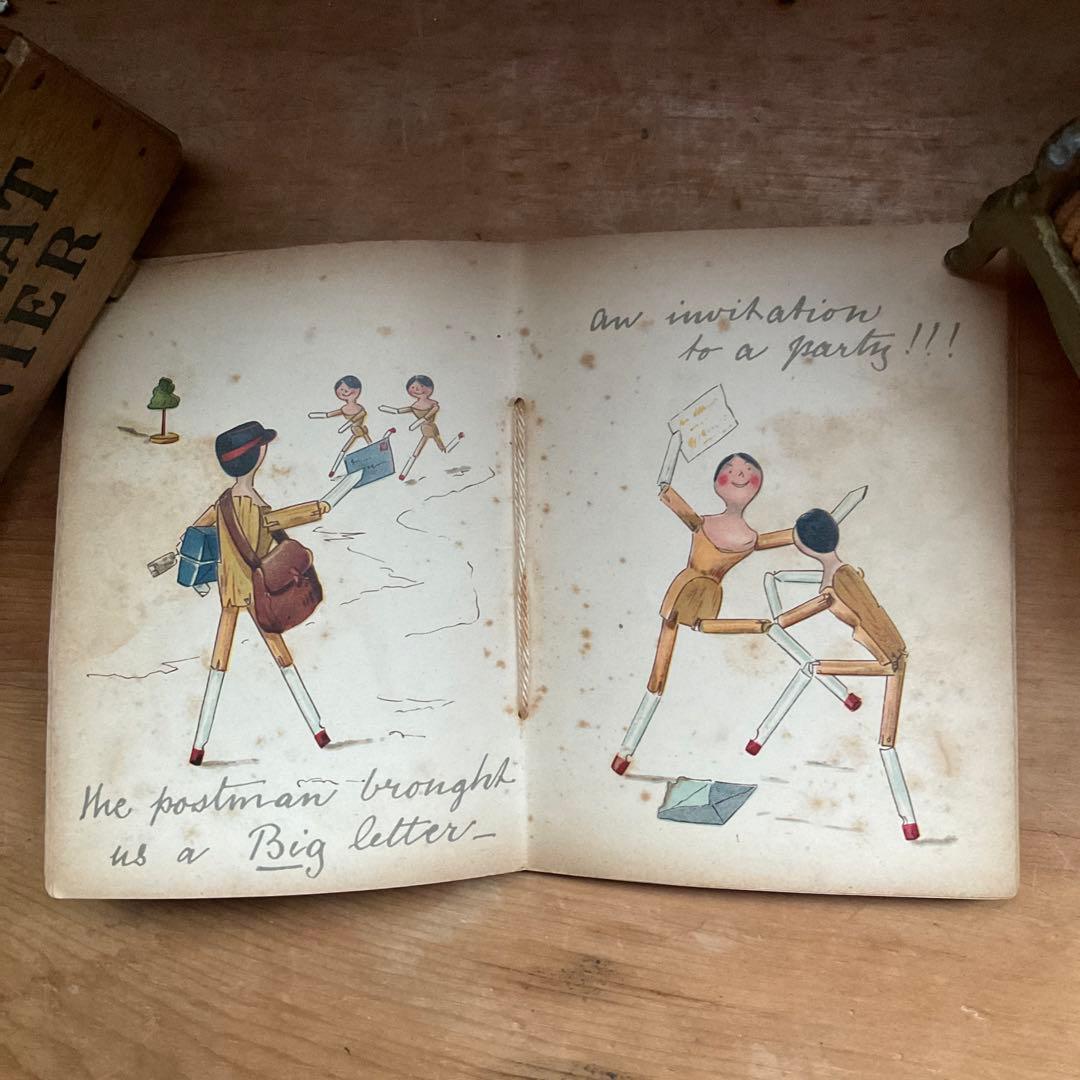 the postman brought
us a Big letter_
an invitation
to a party!!!